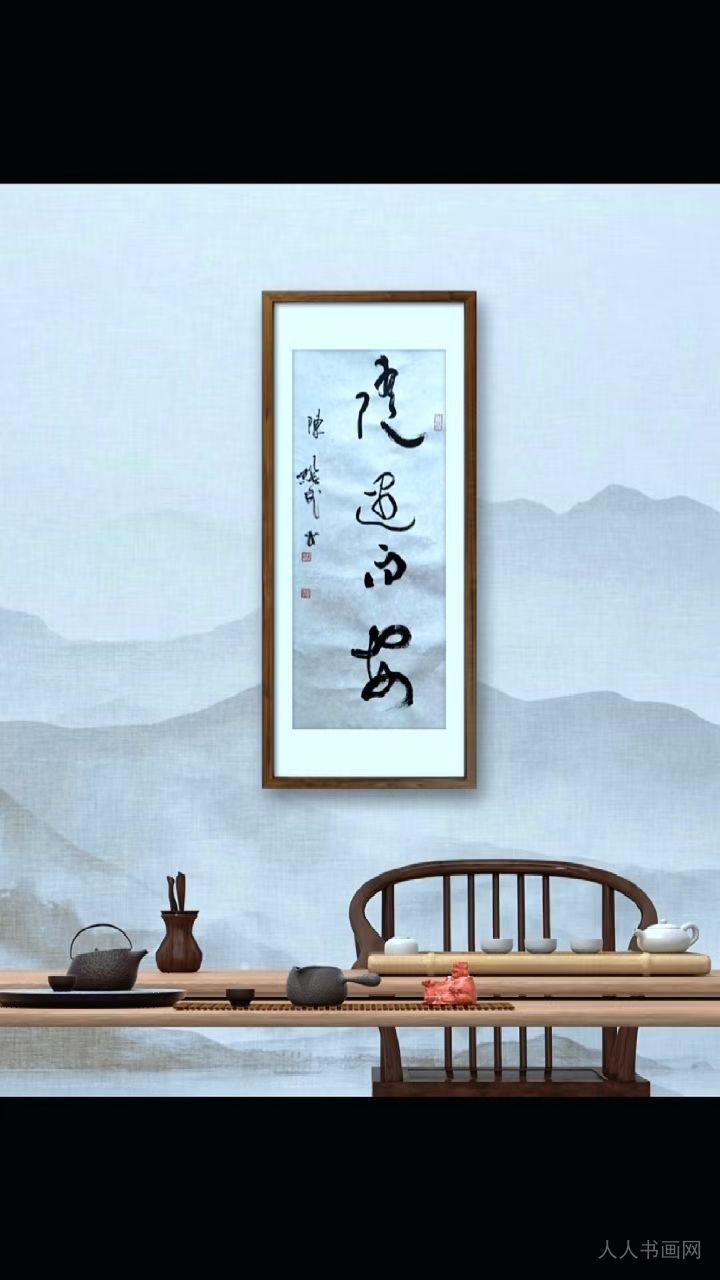 随遇而安
陳
书
人人书画网